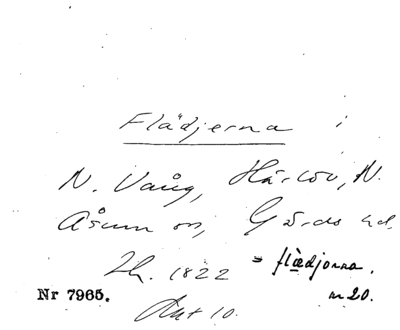 Flädjerna i
N. Vång, Härlöv, N.
Åsum sn, Gärds hd.
Lh. 1822 = flædjorna.
Nr 7965. nr 20.
Akt 10.